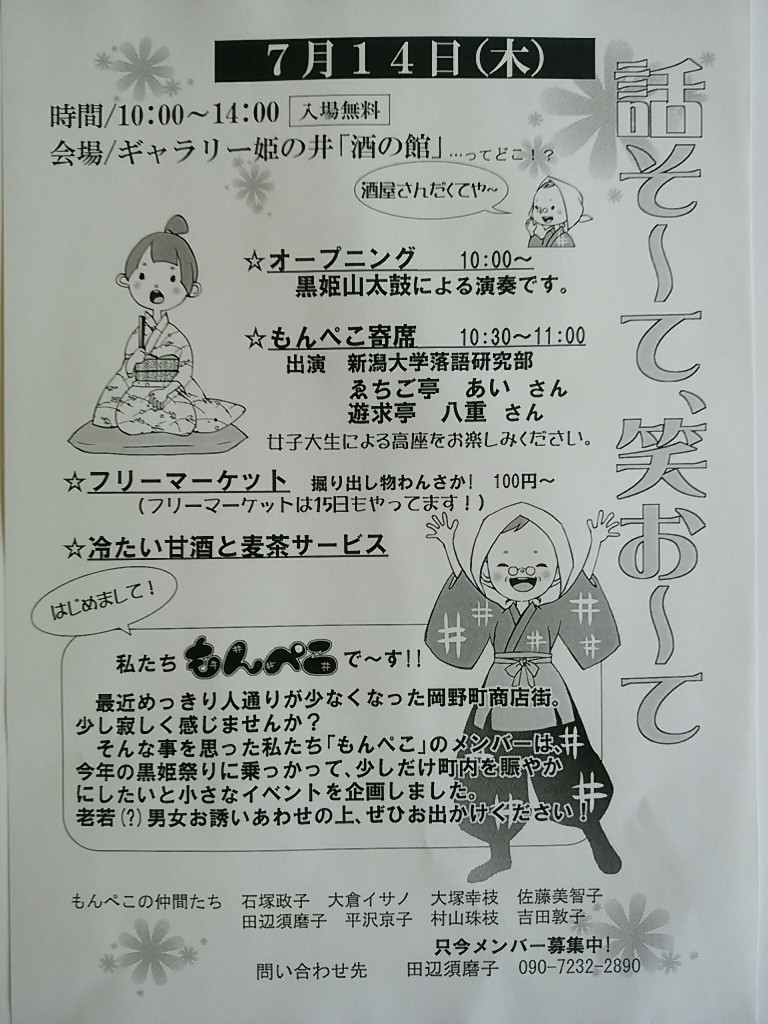 7月14日(木)
話そ～て、笑お～て
時間/10:00～14:00 入場無料
会場/ギャラリー姫の井「酒の館」…ってどこ!?
酒屋さんだくてや～
☆オープニング 10:00～
黒姫山太鼓による演奏です。
☆もんぺこ寄席 10:30～11:00
出演 新潟大学落語研究部
ゑちご亭 あい さん
遊求亭 八重 さん
女子大生による高座をお楽しみください。
☆フリーマーケット 掘り出し物わんさか! 100円～
(フリーマーケットは15日もやってます!)
☆冷たい甘酒と麦茶サービス
はじめまして!
私たち もんぺこ で～す!!
最近めっきり人通りが少なくなった岡野町商店街。
少し寂しく感じませんか?
そんな事を思った私たち「もんぺこ」のメンバーは、
今年の黒姫祭りに乗っかって、少しだけ町内を賑やか
にしたいと小さなイベントを企画しました。
老若(?)男女お誘いあわせの上、ぜひお出かけください!
もんぺこの仲間たち 石塚政子 大倉イサノ 大塚幸枝 佐藤美智子
田辺須磨子 平沢京子 村山珠枝 吉田敦子
只今メンバー募集中!
問い合わせ先 田辺須磨子 090-7232-2890